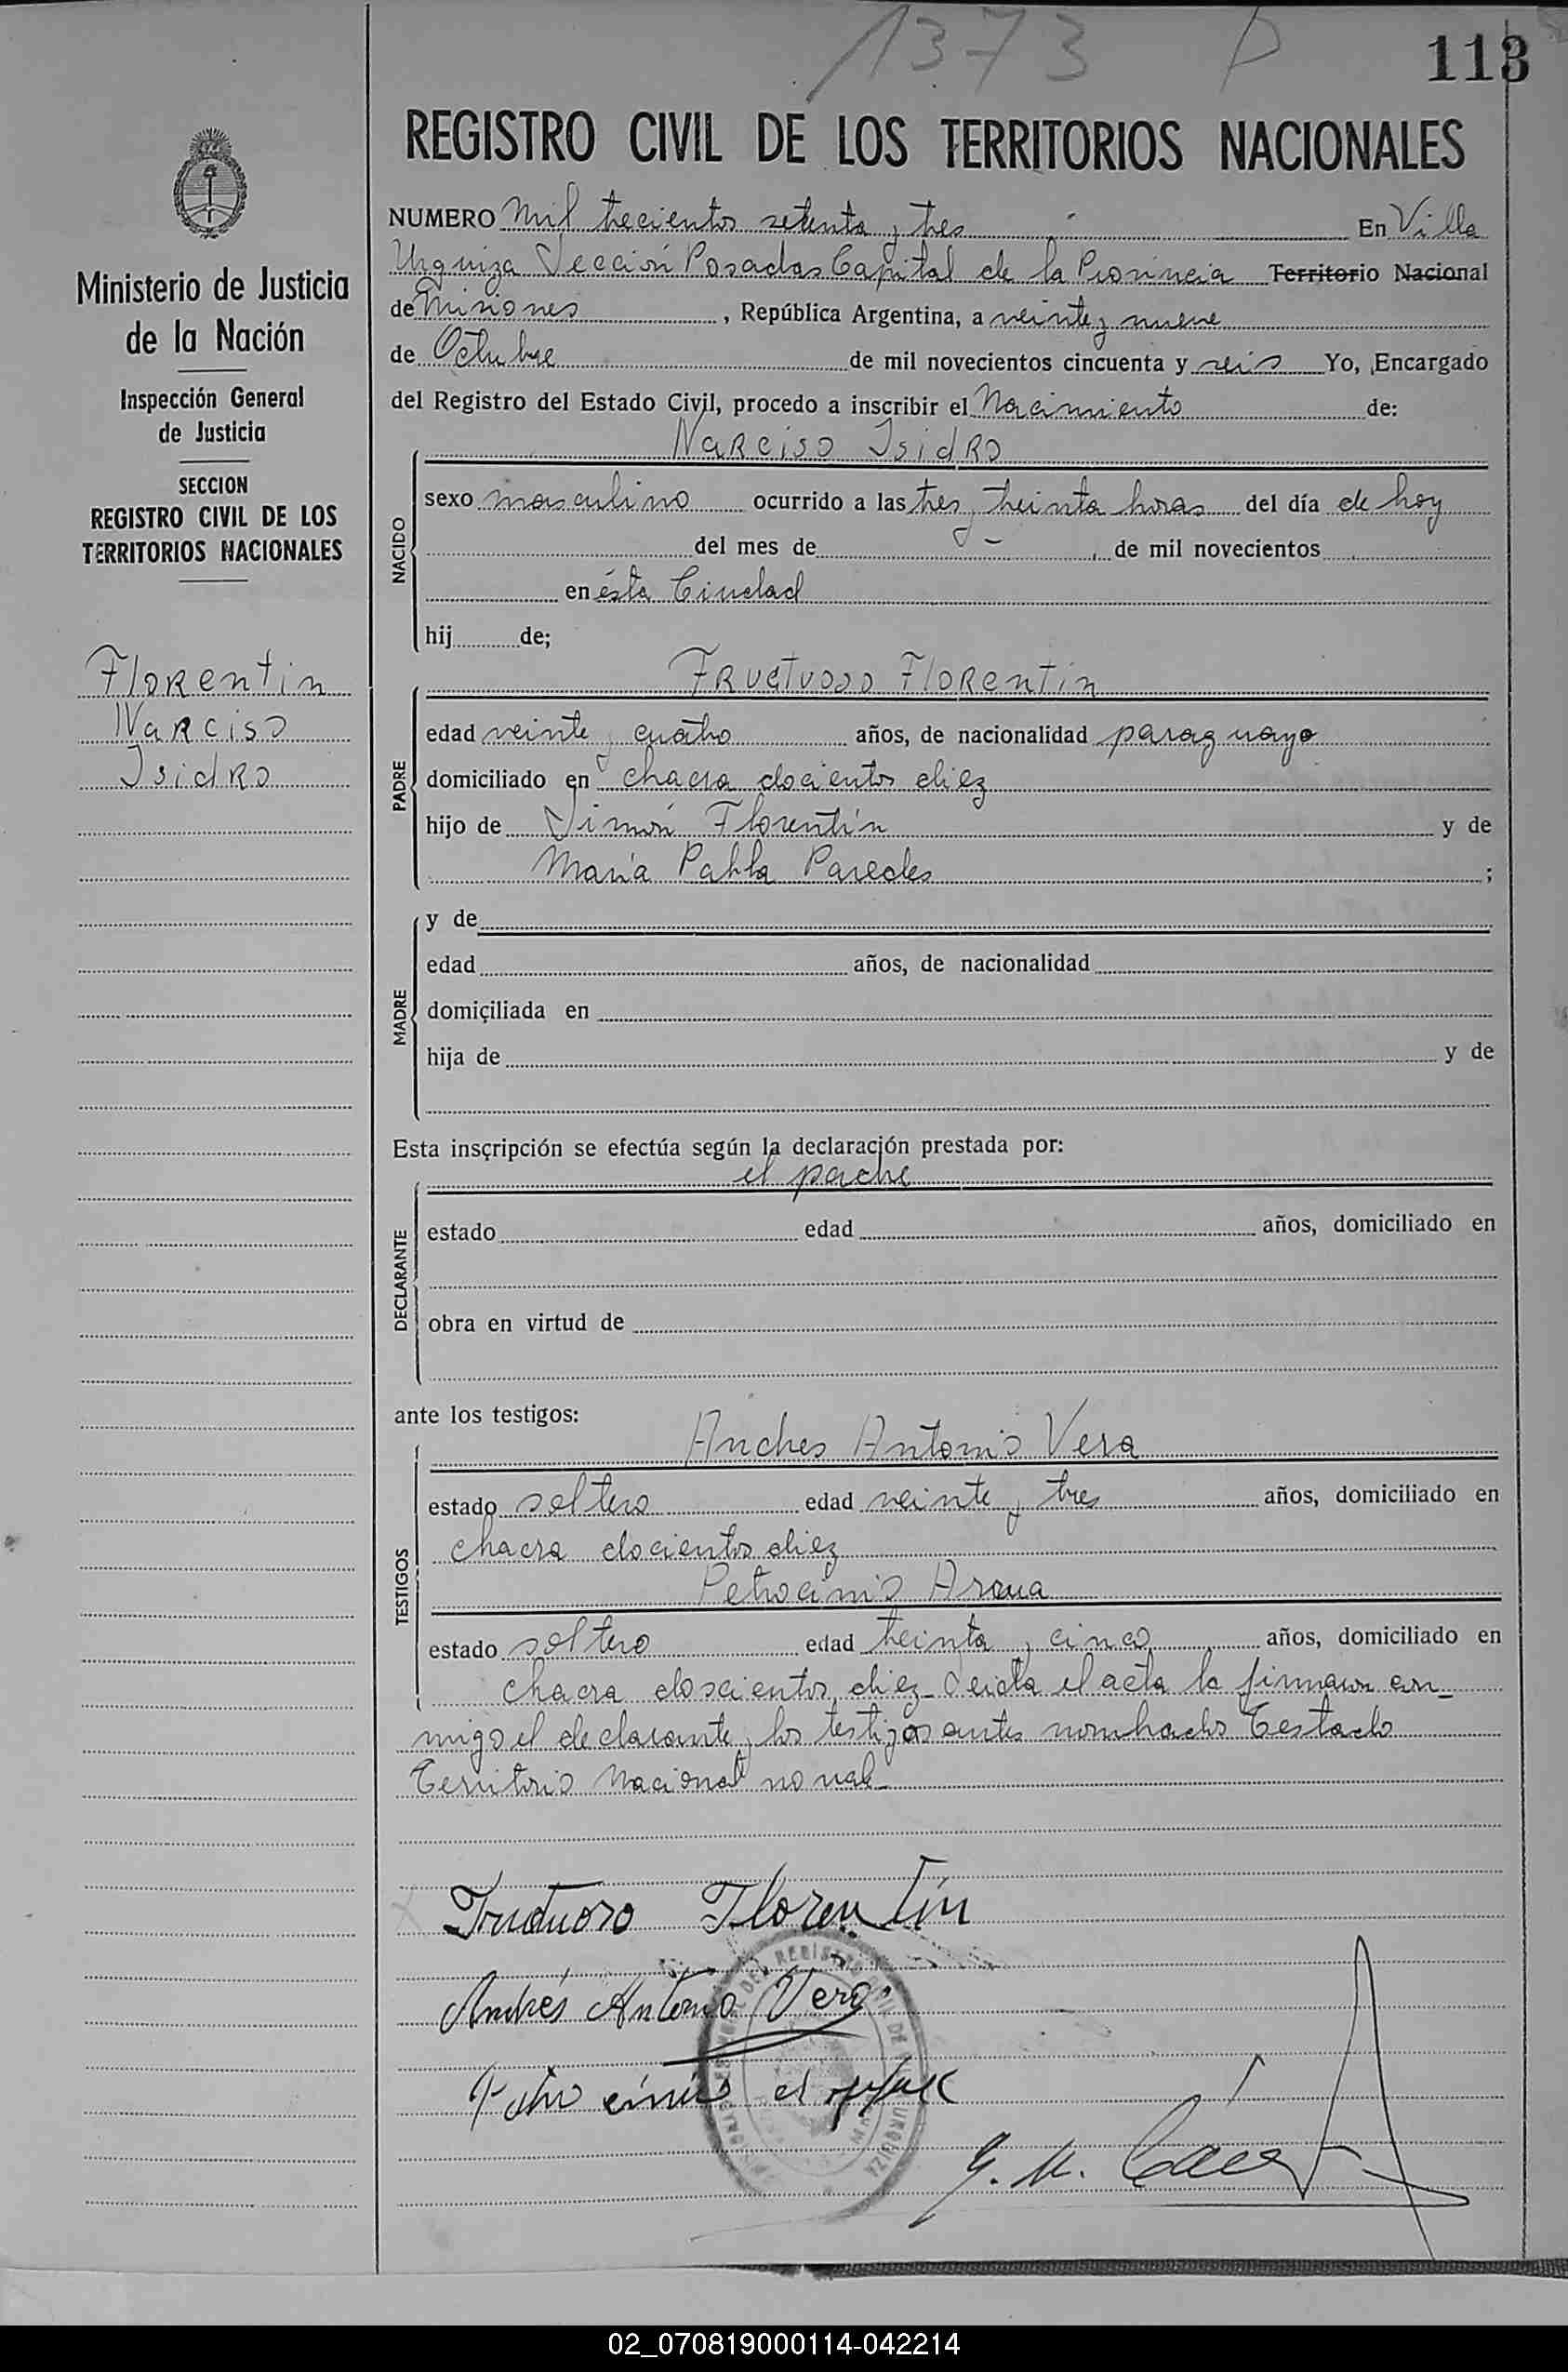 1373 P 113
REGISTRO CIVIL DE LOS TERRITORIOS NACIONALES
Ministerio de Justicia
de la Nación
Inspección General
de Justicia
SECCION
REGISTRO CIVIL DE LOS
TERRITORIOS NACIONALES
Florentin
Narciso
Isidro
NUMERO Mil trecientos setenta y tres En Villa
Urquiza Sección Posadas Capital de la Provincia Territorio Nacional
de Misiones, República Argentina, a veinte y nueve
de Octubre de mil novecientos cincuenta y seis Yo, Encargado
del Registro del Estado Civil, procedo a inscribir el Nacimiento de:
Narciso Isidro
NACIDO
sexo masculino ocurrido a las tres y treinta horas del día de hoy
del mes de - de mil novecientos
en ésta Ciudad
hij de;
Fructuoso Florentín
PADRE
edad veinte y cuatro años, de nacionalidad paraguayo
domiciliado en chacra docientos diez
hijo de Simón Florentín y de
María Pabla Paredes ;
MADRE
y de
edad años, de nacionalidad
domiciliada en
hija de y de
Esta inscripción se efectúa según la declaración prestada por:
el padre
DECLARANTE
estado edad años, domiciliado en
obra en virtud de
ante los testigos:
Andres Antonio Vera
TESTIGOS
estado soltero edad veinte y tres años, domiciliado en
chacra docientos diez
Petrocinio
estado soltero edad treinta y cinco años, domiciliado en
chacra doscientos diez - Leida el acta la firmaron con-
migo el declarante y los testigos antes nombrados Testado
Territorio Nacional no vale-
Fructuoso Florentín
Andrés Antonio Vera
G. M.
URQUIZA
02_070819000114-042214